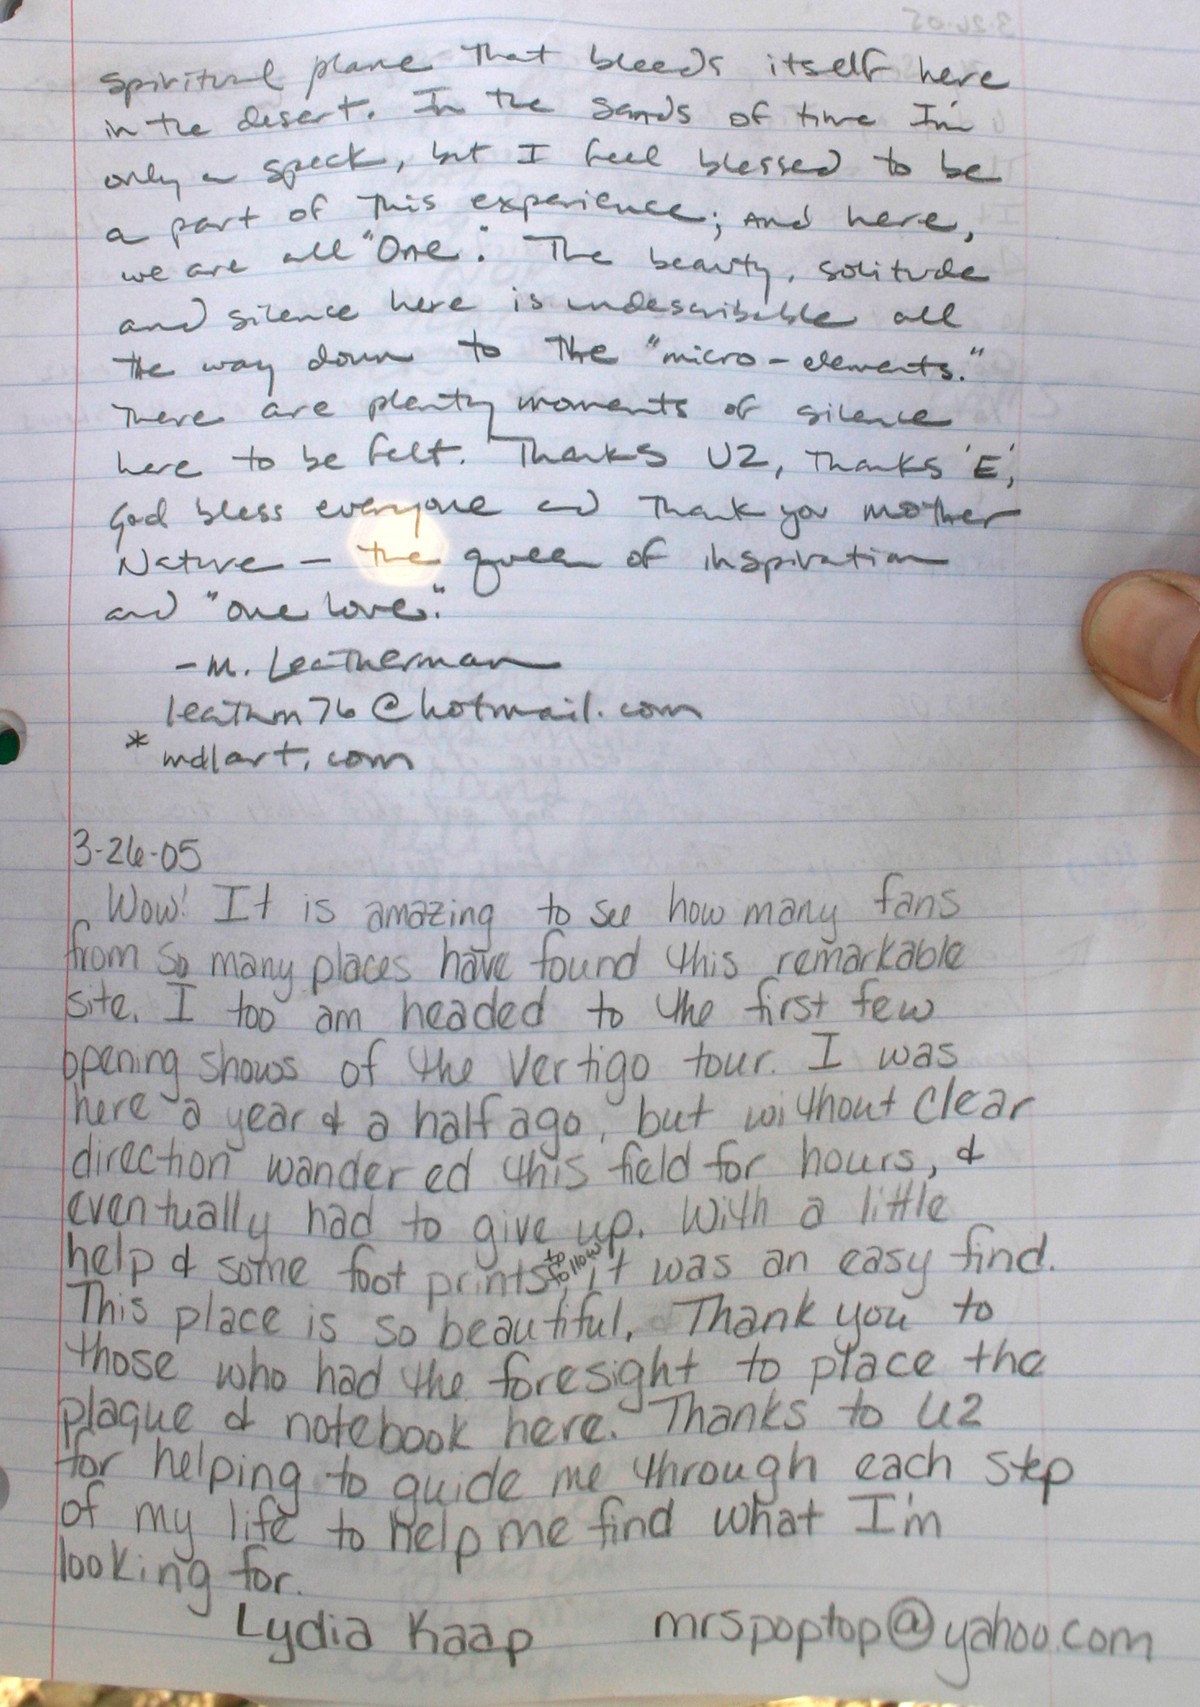 spiritual plane that bleeds itself here
in the desert. In the sands of time I'm
only a speck, but I feel blessed to be
a part of this experience; And here,
we are all "One." The beauty, solitude
and silence here is undescribable all
the way down to the "micro-elements."
There are plenty moments of silence
here to be felt. Thanks U2, Thanks 'E',
God bless everyone and Thank you mother
Nature – the queen of inspiration
and "one love."
-M. Leatherman
leathm76@hotmail.com
* mdlart.com
3-26-05
Wow! It is amazing to see how many fans
from so many places have found this remarkable
site. I too am headed to the first few
opening shows of the Vertigo tour. I was
here a year & a half ago, but without clear
direction wandered this field for hours, &
eventually had to give up. With a little
help & some foot prints to follow, it was an easy find.
This place is so beautiful. Thank you to
those who had the foresight to place the
plaque & notebook here. Thanks to U2
for helping to guide me through each step
of my life to help me find what I'm
looking for.
Lydia Kaap mrspoptop@yahoo.com